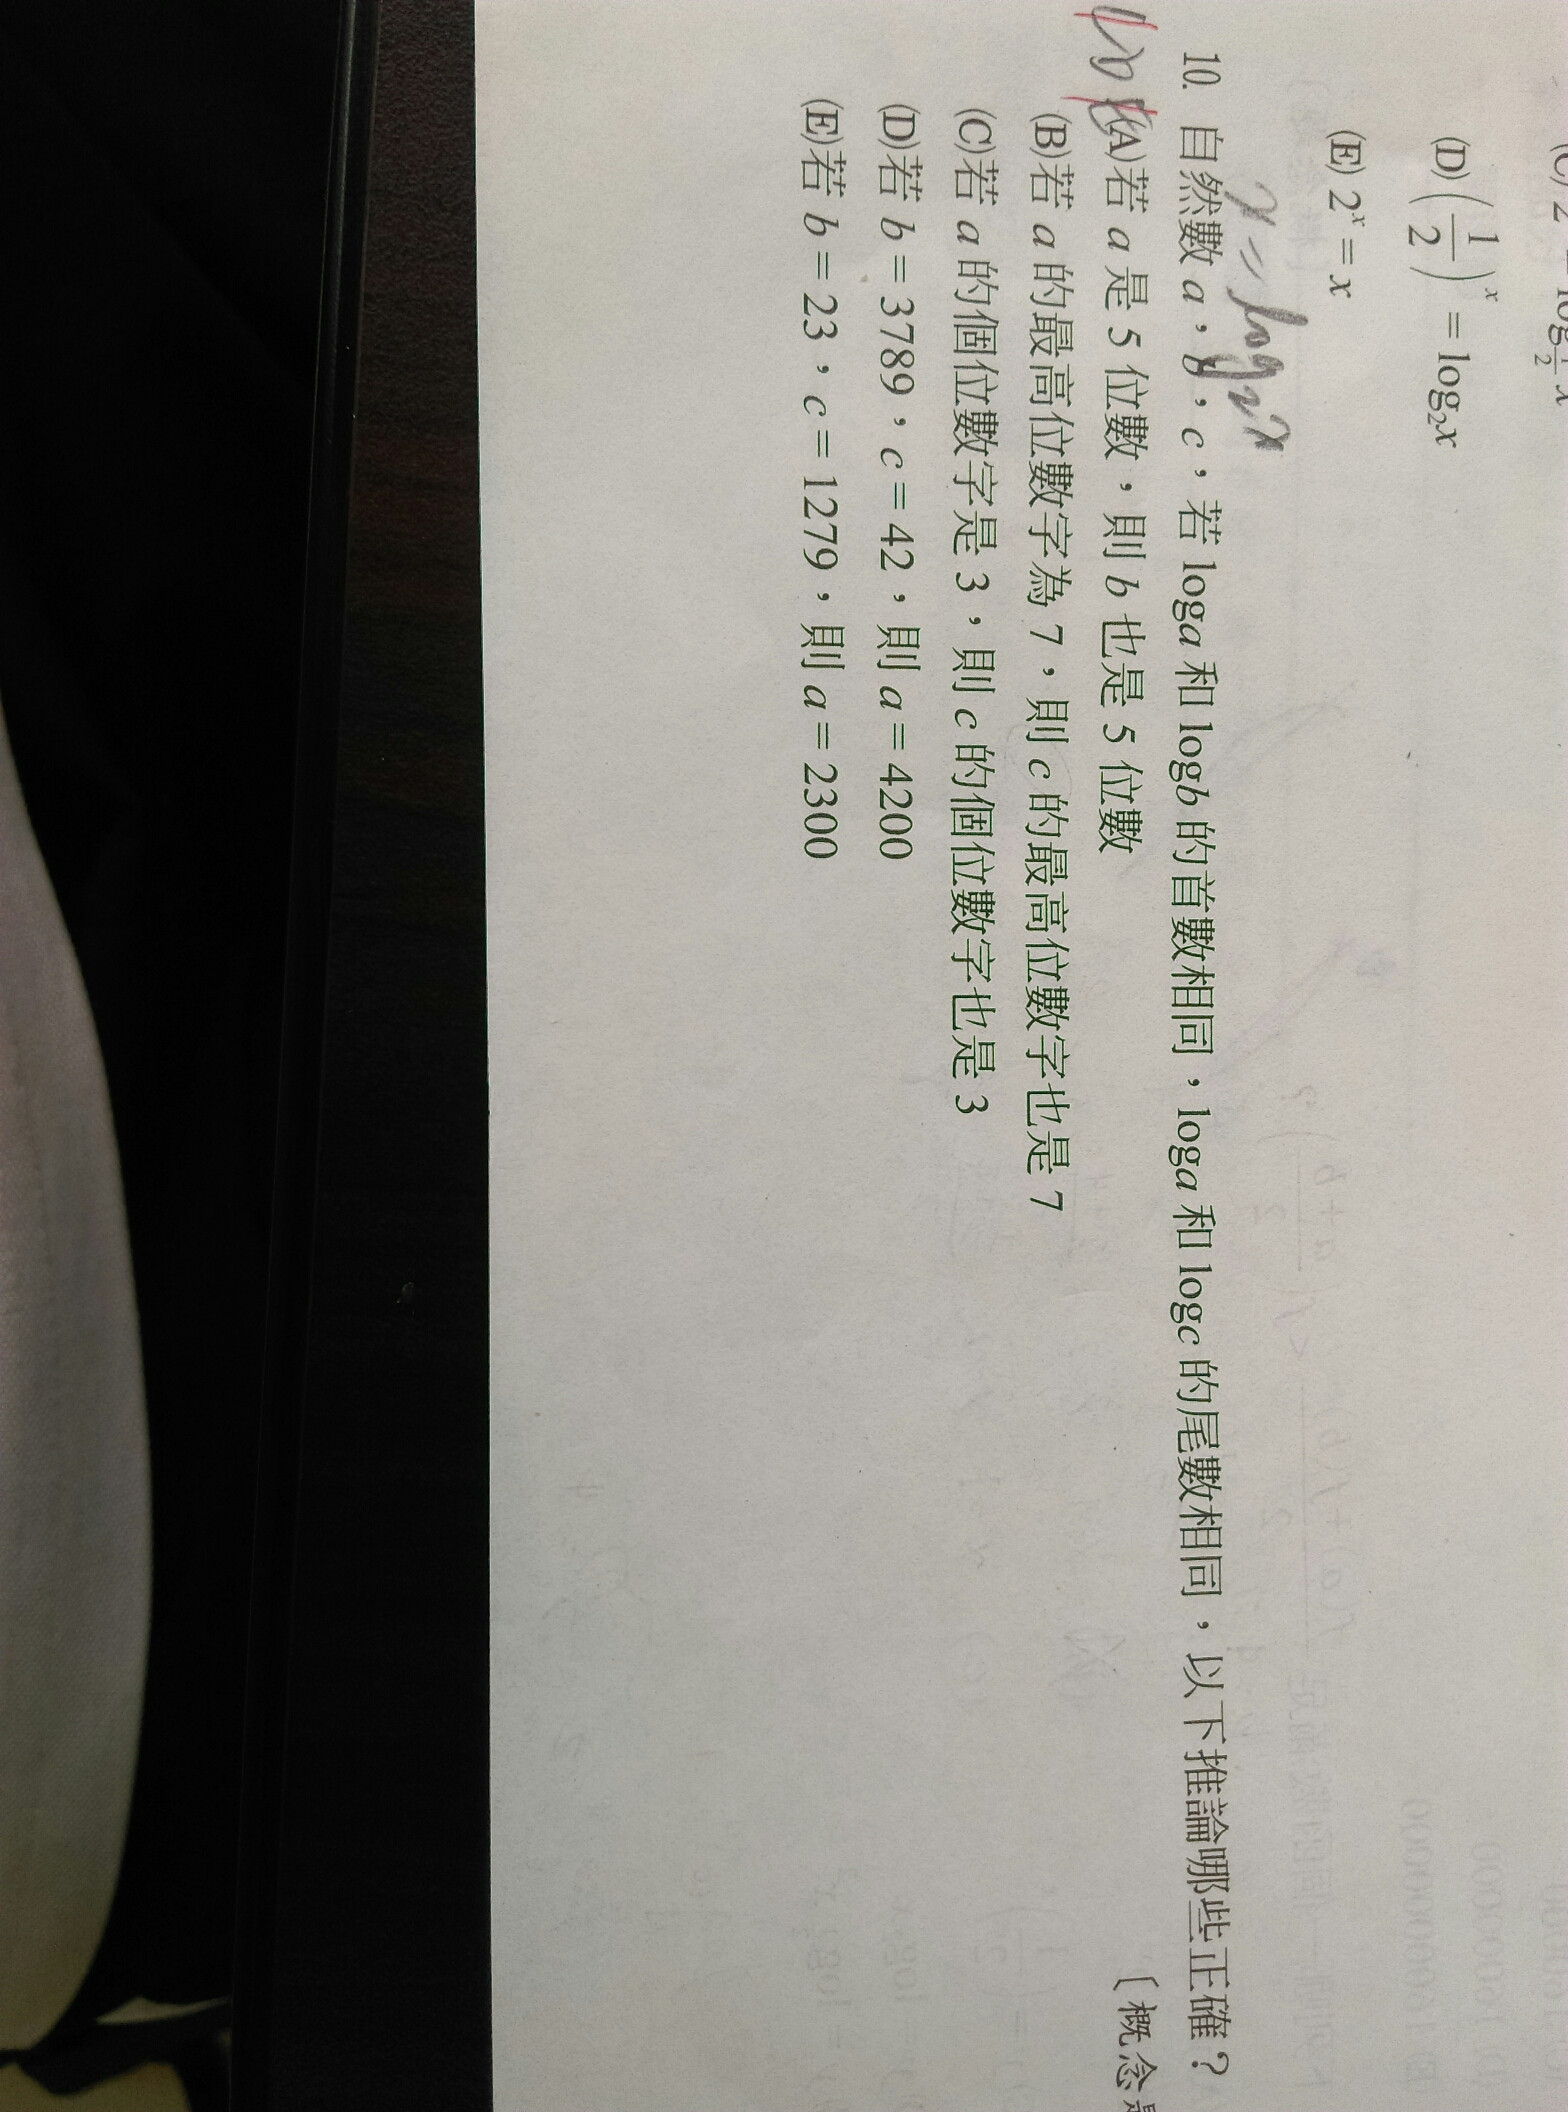 (D) (1/2)^x = log₂x
(E) 2^x = x
x = log₂x
10. 自然數 a，b，c，若 loga 和 logb 的首數相同，loga 和 logc 的尾數相同，以下推論哪些正確？
〔概念
(A)若 a 是 5 位數，則 b 也是 5 位數
(B)若 a 的最高位數字為 7，則 c 的最高位數字也是 7
(C)若 a 的個位數字是 3，則 c 的個位數字也是 3
(D)若 b = 3789，c = 42，則 a = 4200
(E)若 b = 23，c = 1279，則 a = 2300